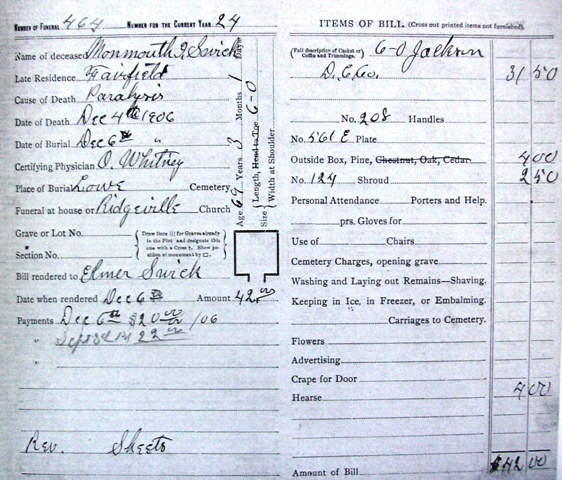 NUMBER OF FUNERAL 464 NUMBER FOR THE CURRENT YEAR 24
Name of deceased Monmouth I Swick
Late Residence Fairfield
Cause of Death Paralysis
Date of Death Dec 4th 1906
Date of Burial Dec 6th "
Certifying Physician O. Whitney
Place of Burial Lowe Cemetery
Funeral at house or Ridgeville Church
Age 69 Years 3 Months 1 Days
Size { Length, Head to Toe 6-0
Width at Shoulder
Grave or Lot No.
Section No.
{ Draw lines ||| for Graves already in the Plot and designate this one with a Cross †. Show position of monument by □. }
Bill rendered to Elmer Swick
Date when rendered Dec 6th Amount 42.00
Payments Dec 6th $20.00 /06
" Sept 3rd 22.00
"
"
Rev. Sheets
ITEMS OF BILL. (Cross out printed items not furnished.)
(Full description of Casket or Coffin and Trimmings.) 6-0 Jackson
D. C. Co. 31 50
No. 208 Handles
No. 561 E Plate
Outside Box, Pine, Chestnut, Oak, Cedar 4 00
No. 124 Shroud 2 50
Personal Attendance Porters and Help.
prs. Gloves for
Use of Chairs
Cemetery Charges, opening grave
Washing and Laying out Remains—Shaving.
Keeping in Ice, in Freezer, or Embalming.
Carriages to Cemetery.
Flowers
Advertising
Crape for Door
Hearse 4 00
Amount of Bill $42 00